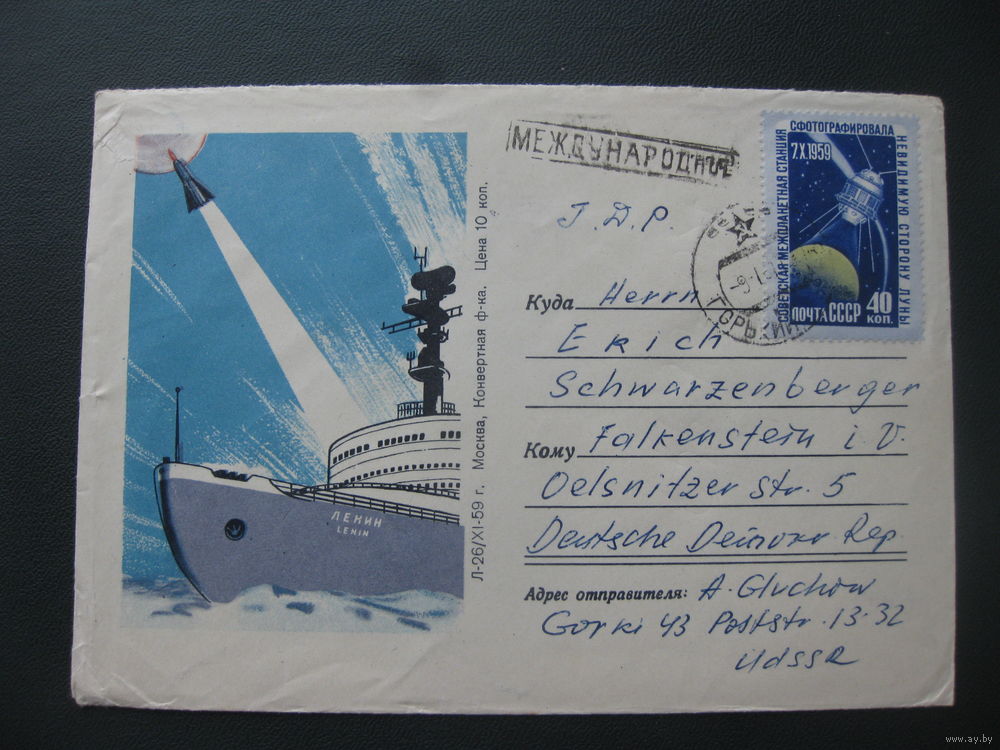 МЕЖДУНАРОДНОЕ
СОВЕТСКАЯ МЕЖПЛАНЕТНАЯ СТАНЦИЯ
СФОТОГРАФИРОВАЛА
НЕВИДИМУЮ СТОРОНУ ЛУНЫ
7.X.1959
ПОЧТА СССР 40 коп.
ГОРЬКИЙ
Г.Д.Р.
Куда Herrn
Erich
Schwarzenberger
Кому Falkenstein i. V.
Oelsnitzer str. 5
Deutsche Demokr Rep.
Адрес отправителя: A. Gluchow
Gorki 43 Poststr. 13-32
UdSSR
Л-26/XI-59 г. Москва, Конвертная ф-ка. Цена 10 коп.
ЛЕНИН
LENIN
www.ay.by